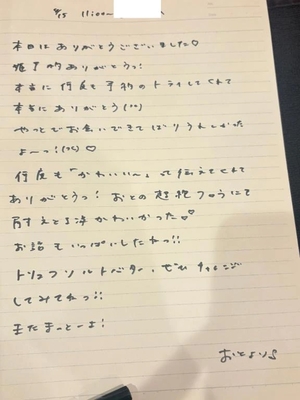 8/15 11:00〜
本日はありがとうございました♡
姫予約ありがとうっ!
本当に何度も予約のトライしてくれて
本当にありがとう(^^)
やっとでお会いできてばりうれしかった
よーっ!(^^)♡
何度も「かわいい〜」って伝えてくれて
ありがとうっ! おとの
えてる姿かわいかった♡
お話もいっぱいしたねっ!!
トリュフソルトバター、ぜひチャレンジ
してみてねっ!!
またまっとーよ!
おとより